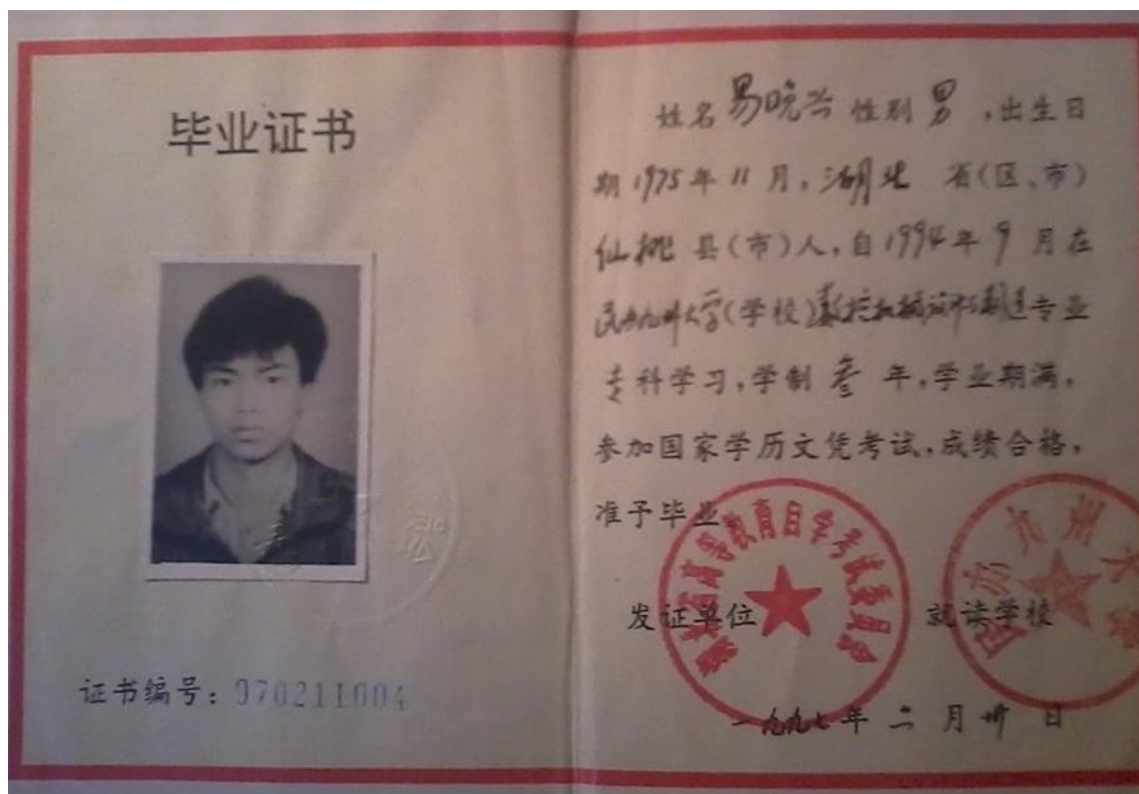 毕业证书
证书编号：970211004
姓名 易晚兴 性别 男 ，出生日
期 1975 年 11 月，湖北 省（区、市）
仙桃 县（市）人，自 1994 年 9 月在
民办九州大学（学校）数控机械 专业
专 科学习，学制 叁 年，学业期满，
参加国家学历文凭考试，成绩合格，
准予毕业
高等教育自学考试委员会
民办九州大学
发证单位 就读学校
一九九七年 二 月 卅 日